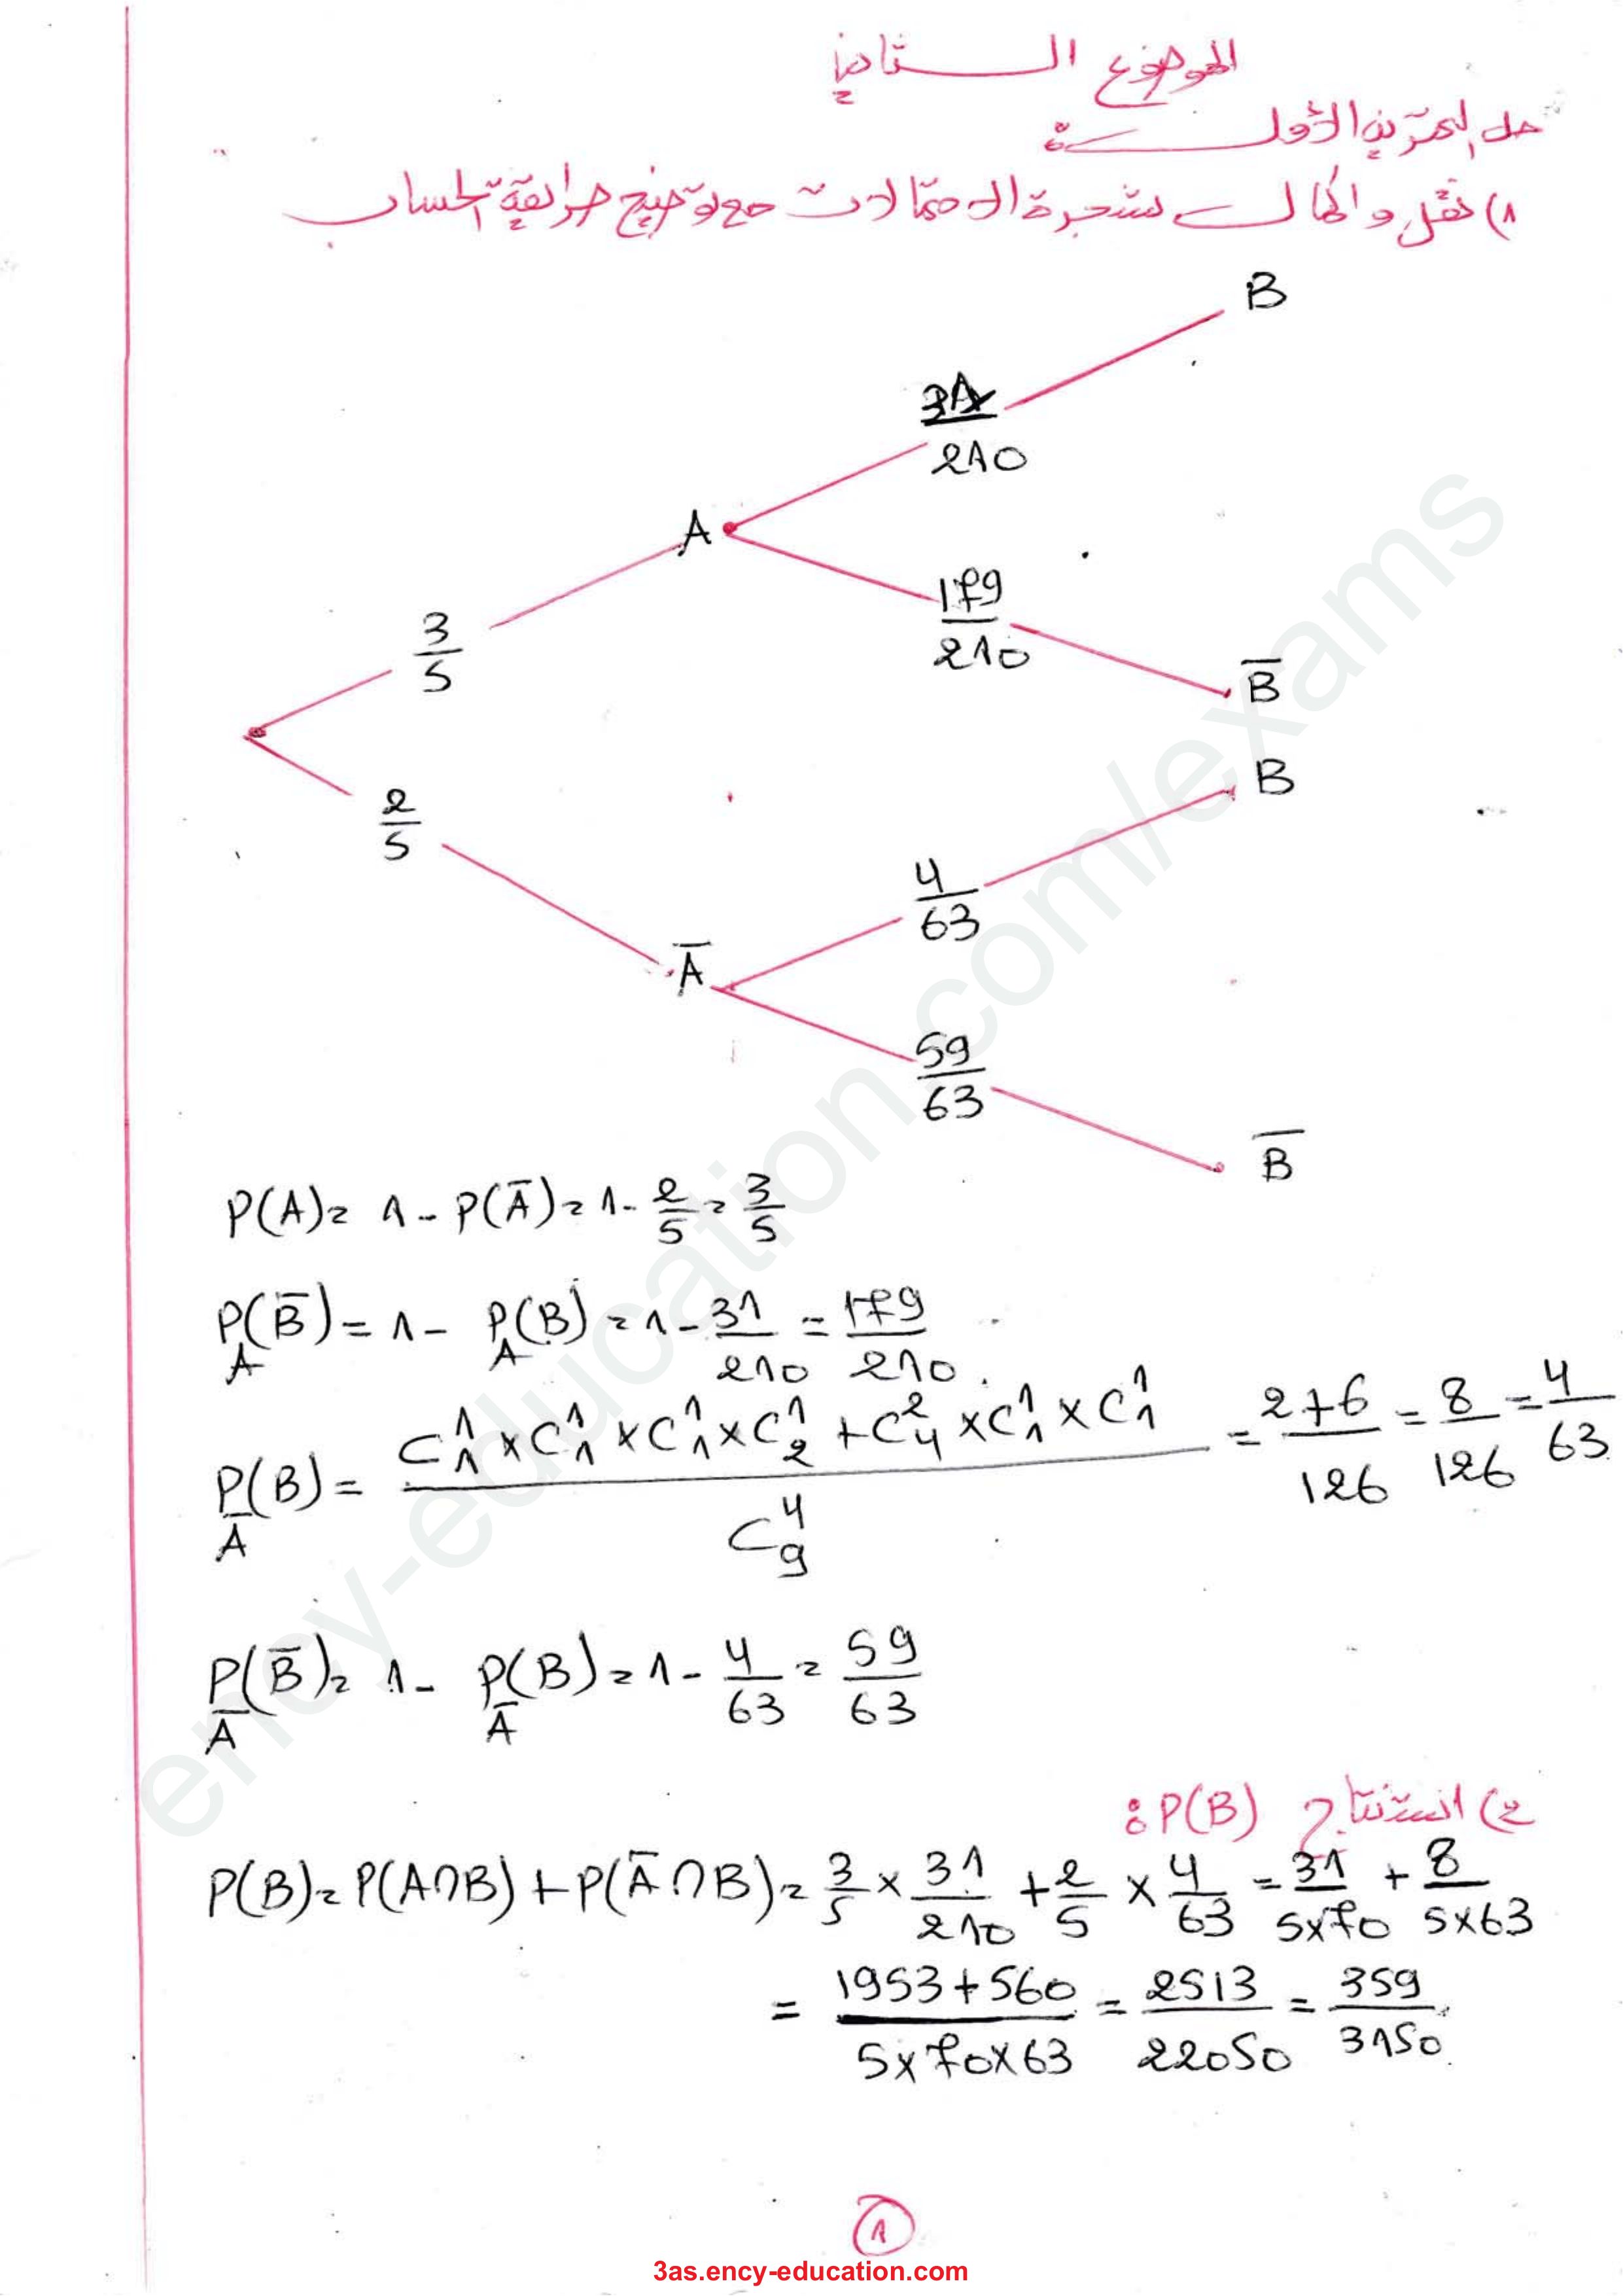 الموضوع الثاني
حل التمرين الأول :
1) نقل و إكمال شجرة الاحتمالات مع توضيح طريقة الحساب
B
31/210
A
179/210
3/5
B̅
B
2/5
4/63
A̅
59/63
B̅
P(A) = 1 - P(A̅) = 1 - 2/5 = 3/5
P_A(B̅) = 1 - P_A(B) = 1 - 31/210 = 179/210
P_A̅(B) = (C_1^1 × C_1^1 × C_1^1 × C_2^1 + C_4^2 × C_1^1 × C_1^1) / C_9^4 = (2+6)/126 = 8/126 = 4/63
P_A̅(B̅) = 1 - P_A̅(B) = 1 - 4/63 = 59/63
2) استنتاج P(B) :
P(B) = P(A∩B) + P(A̅∩B) = 3/5 × 31/210 + 2/5 × 4/63 = 31/(5×70) + 8/(5×63)
= (1953+560)/(5×70×63) = 2513/22050 = 359/3150
1
3as.ency-education.com
ency-education.com/exams